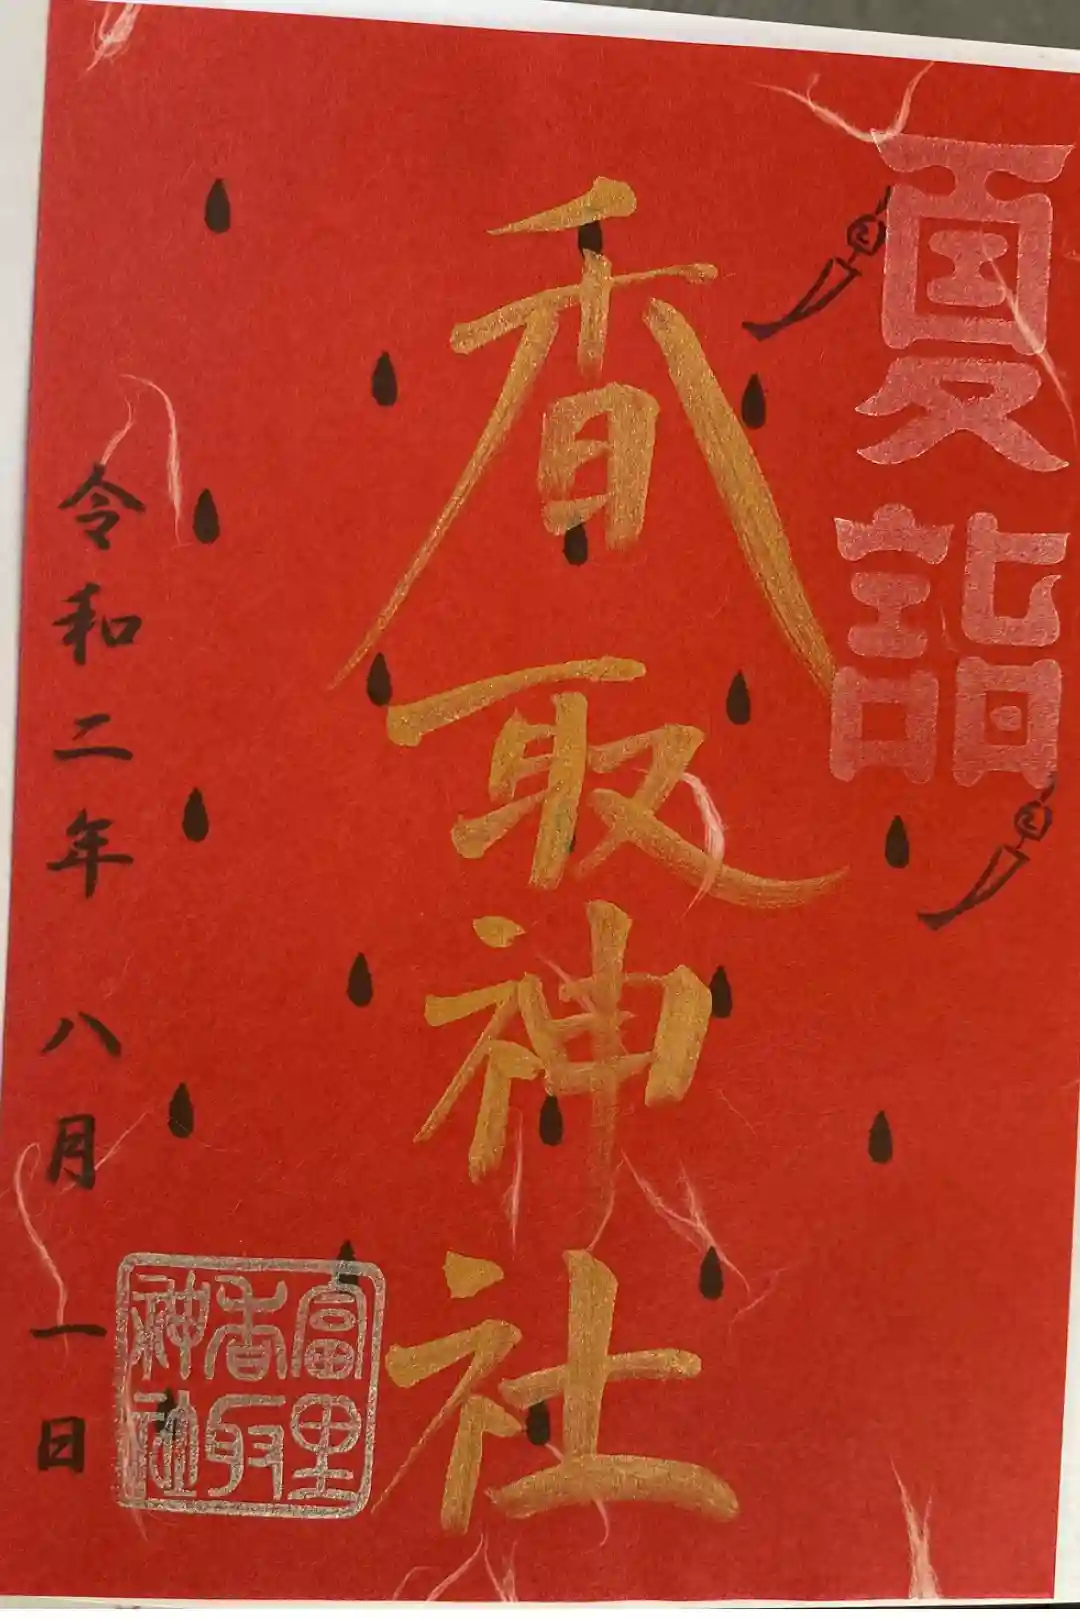 夏詣
香取神社
令和二年八月一日
冨里
香取
神社